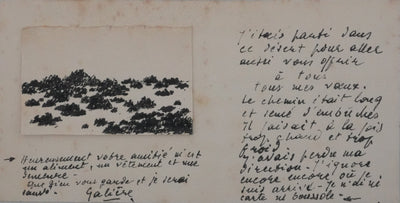 J'étais parti dans
ce désert pour aller
aussi vous offrir
à tous
tous mes vœux.
Le chemin était long
et semé d'embûches
Il faisait à la fois
trop chaud et trop
froid
J'avais perdu ma
direction - J'ignore
encore encore où je
suis arrivé - Je n'ai ni
carte ni boussole -
→ Heureusement votre amitié m'est
un aliment, un vêtement et une
demeure -
Que Dieu vous garde et je serai
sauvé.